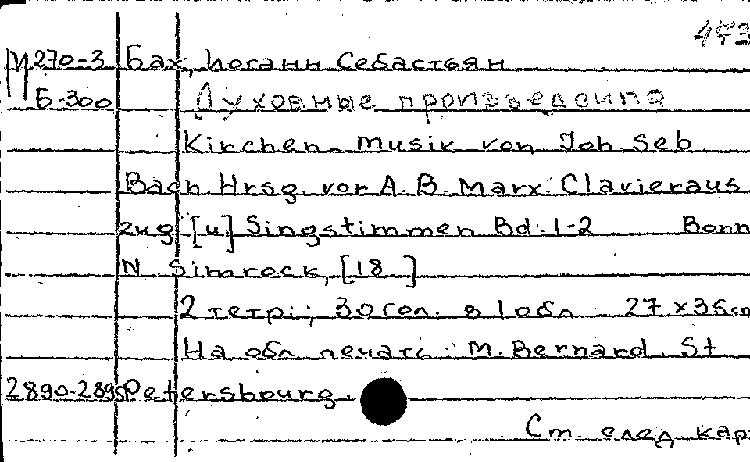 473
М 270-3 Бах, Иоганн Себастьян
Б-300 Духовные произведения
Kirchen-Musik von Joh. Seb.
Bach. Hrsg. von A. B. Marx. Clavieraus
zug [u] Singstimmen Bd. 1-2 Bonn
N. Simrock, [18 ]
2 тетр.; 30 гол. в 1 обл. 27 x 36 cm
На обл. печать: M. Bernard. St
2890-2895 Petersbourg.
См. след. кар